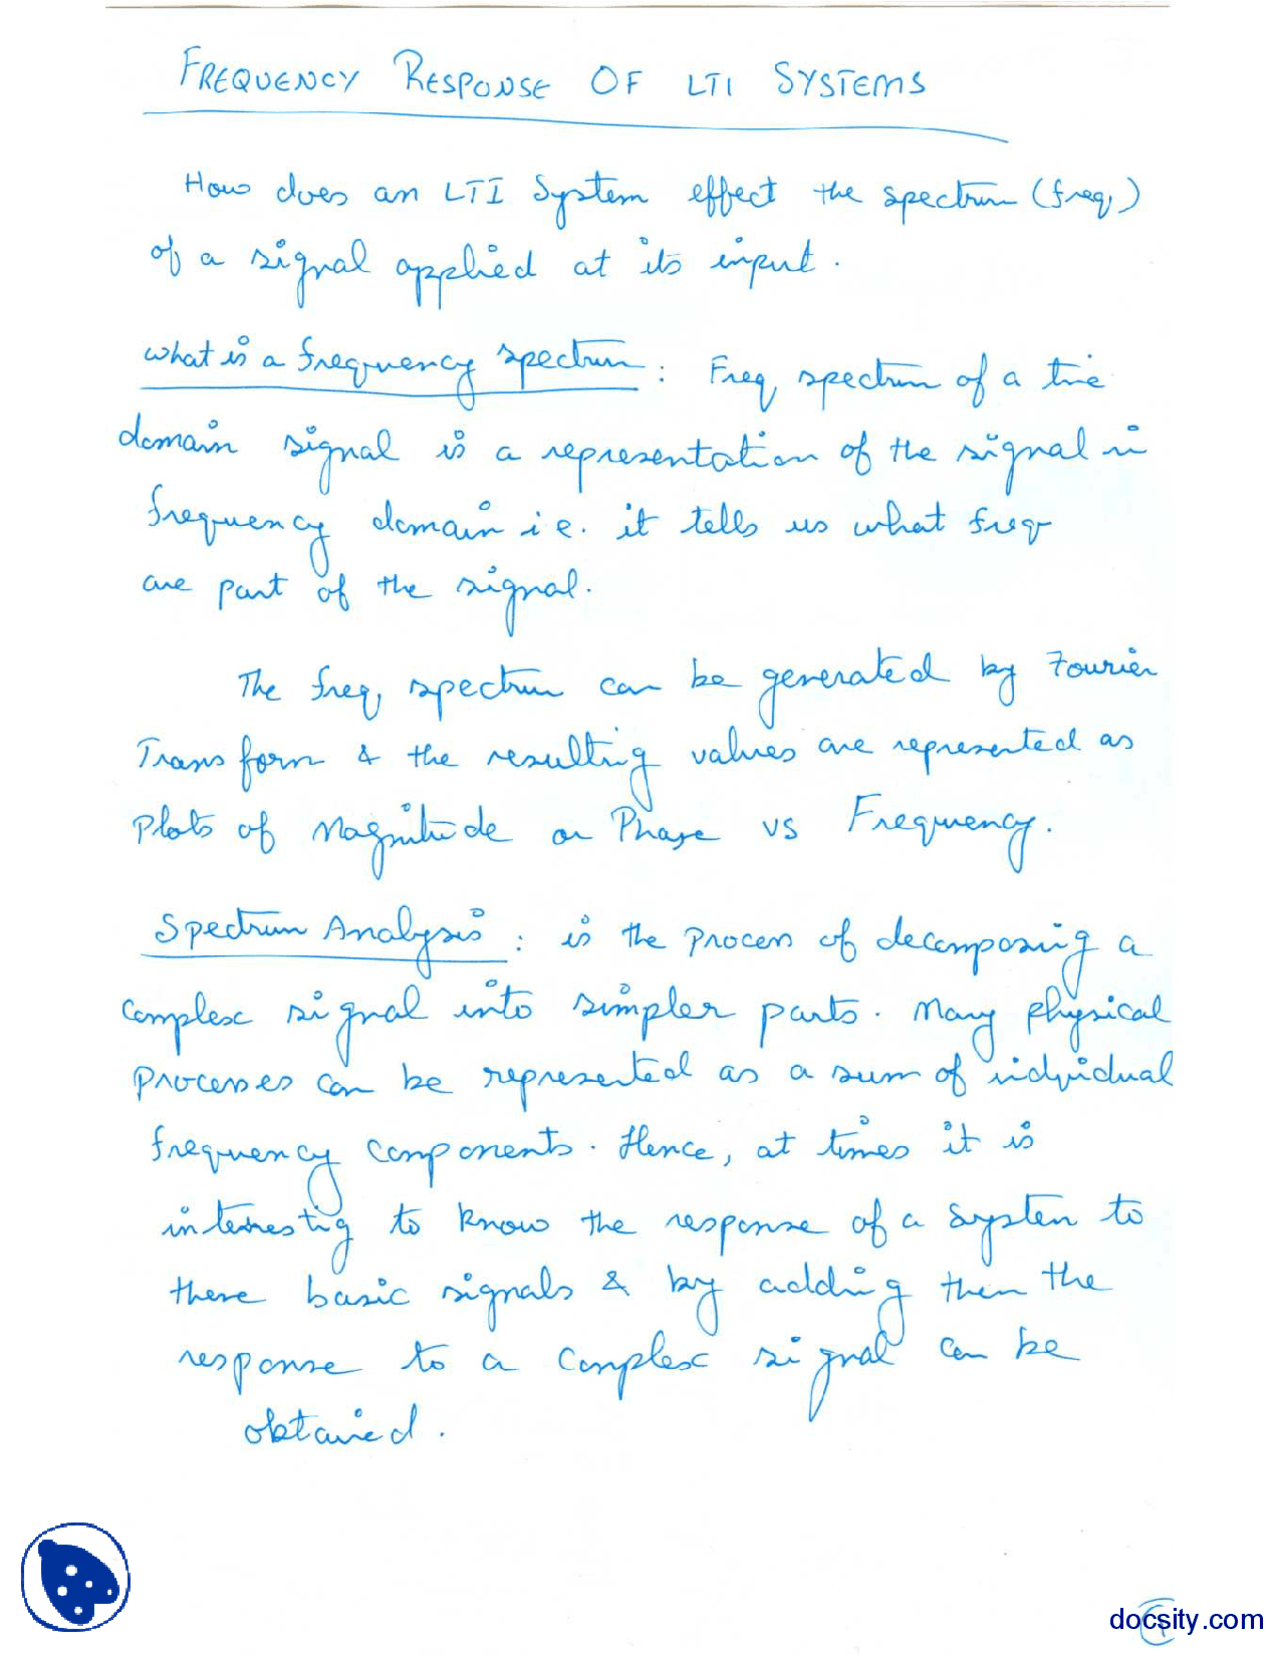 FREQUENCY RESPONSE OF LTI SYSTEMS
How does an LTI System effect the spectrum (freq.)
of a signal applied at its input.
what is a frequency spectrum : Freq, spectrum of a time
domain signal is a representation of the signal in
frequency domain i.e. it tells us what freq
are part of the signal.
The freq, spectrum can be generated by Fourier
Transform & the resulting values are represented as
Plots of Magnitude or Phase vs Frequency.
Spectrum Analysis : is the process of decomposing a
complex signal into simpler parts. Many physical
processes can be represented as a sum of individual
frequency components. Hence, at times it is
interesting to know the response of a system to
these basic signals & by adding them the
response to a complex signal can be
obtained.
docsity.com